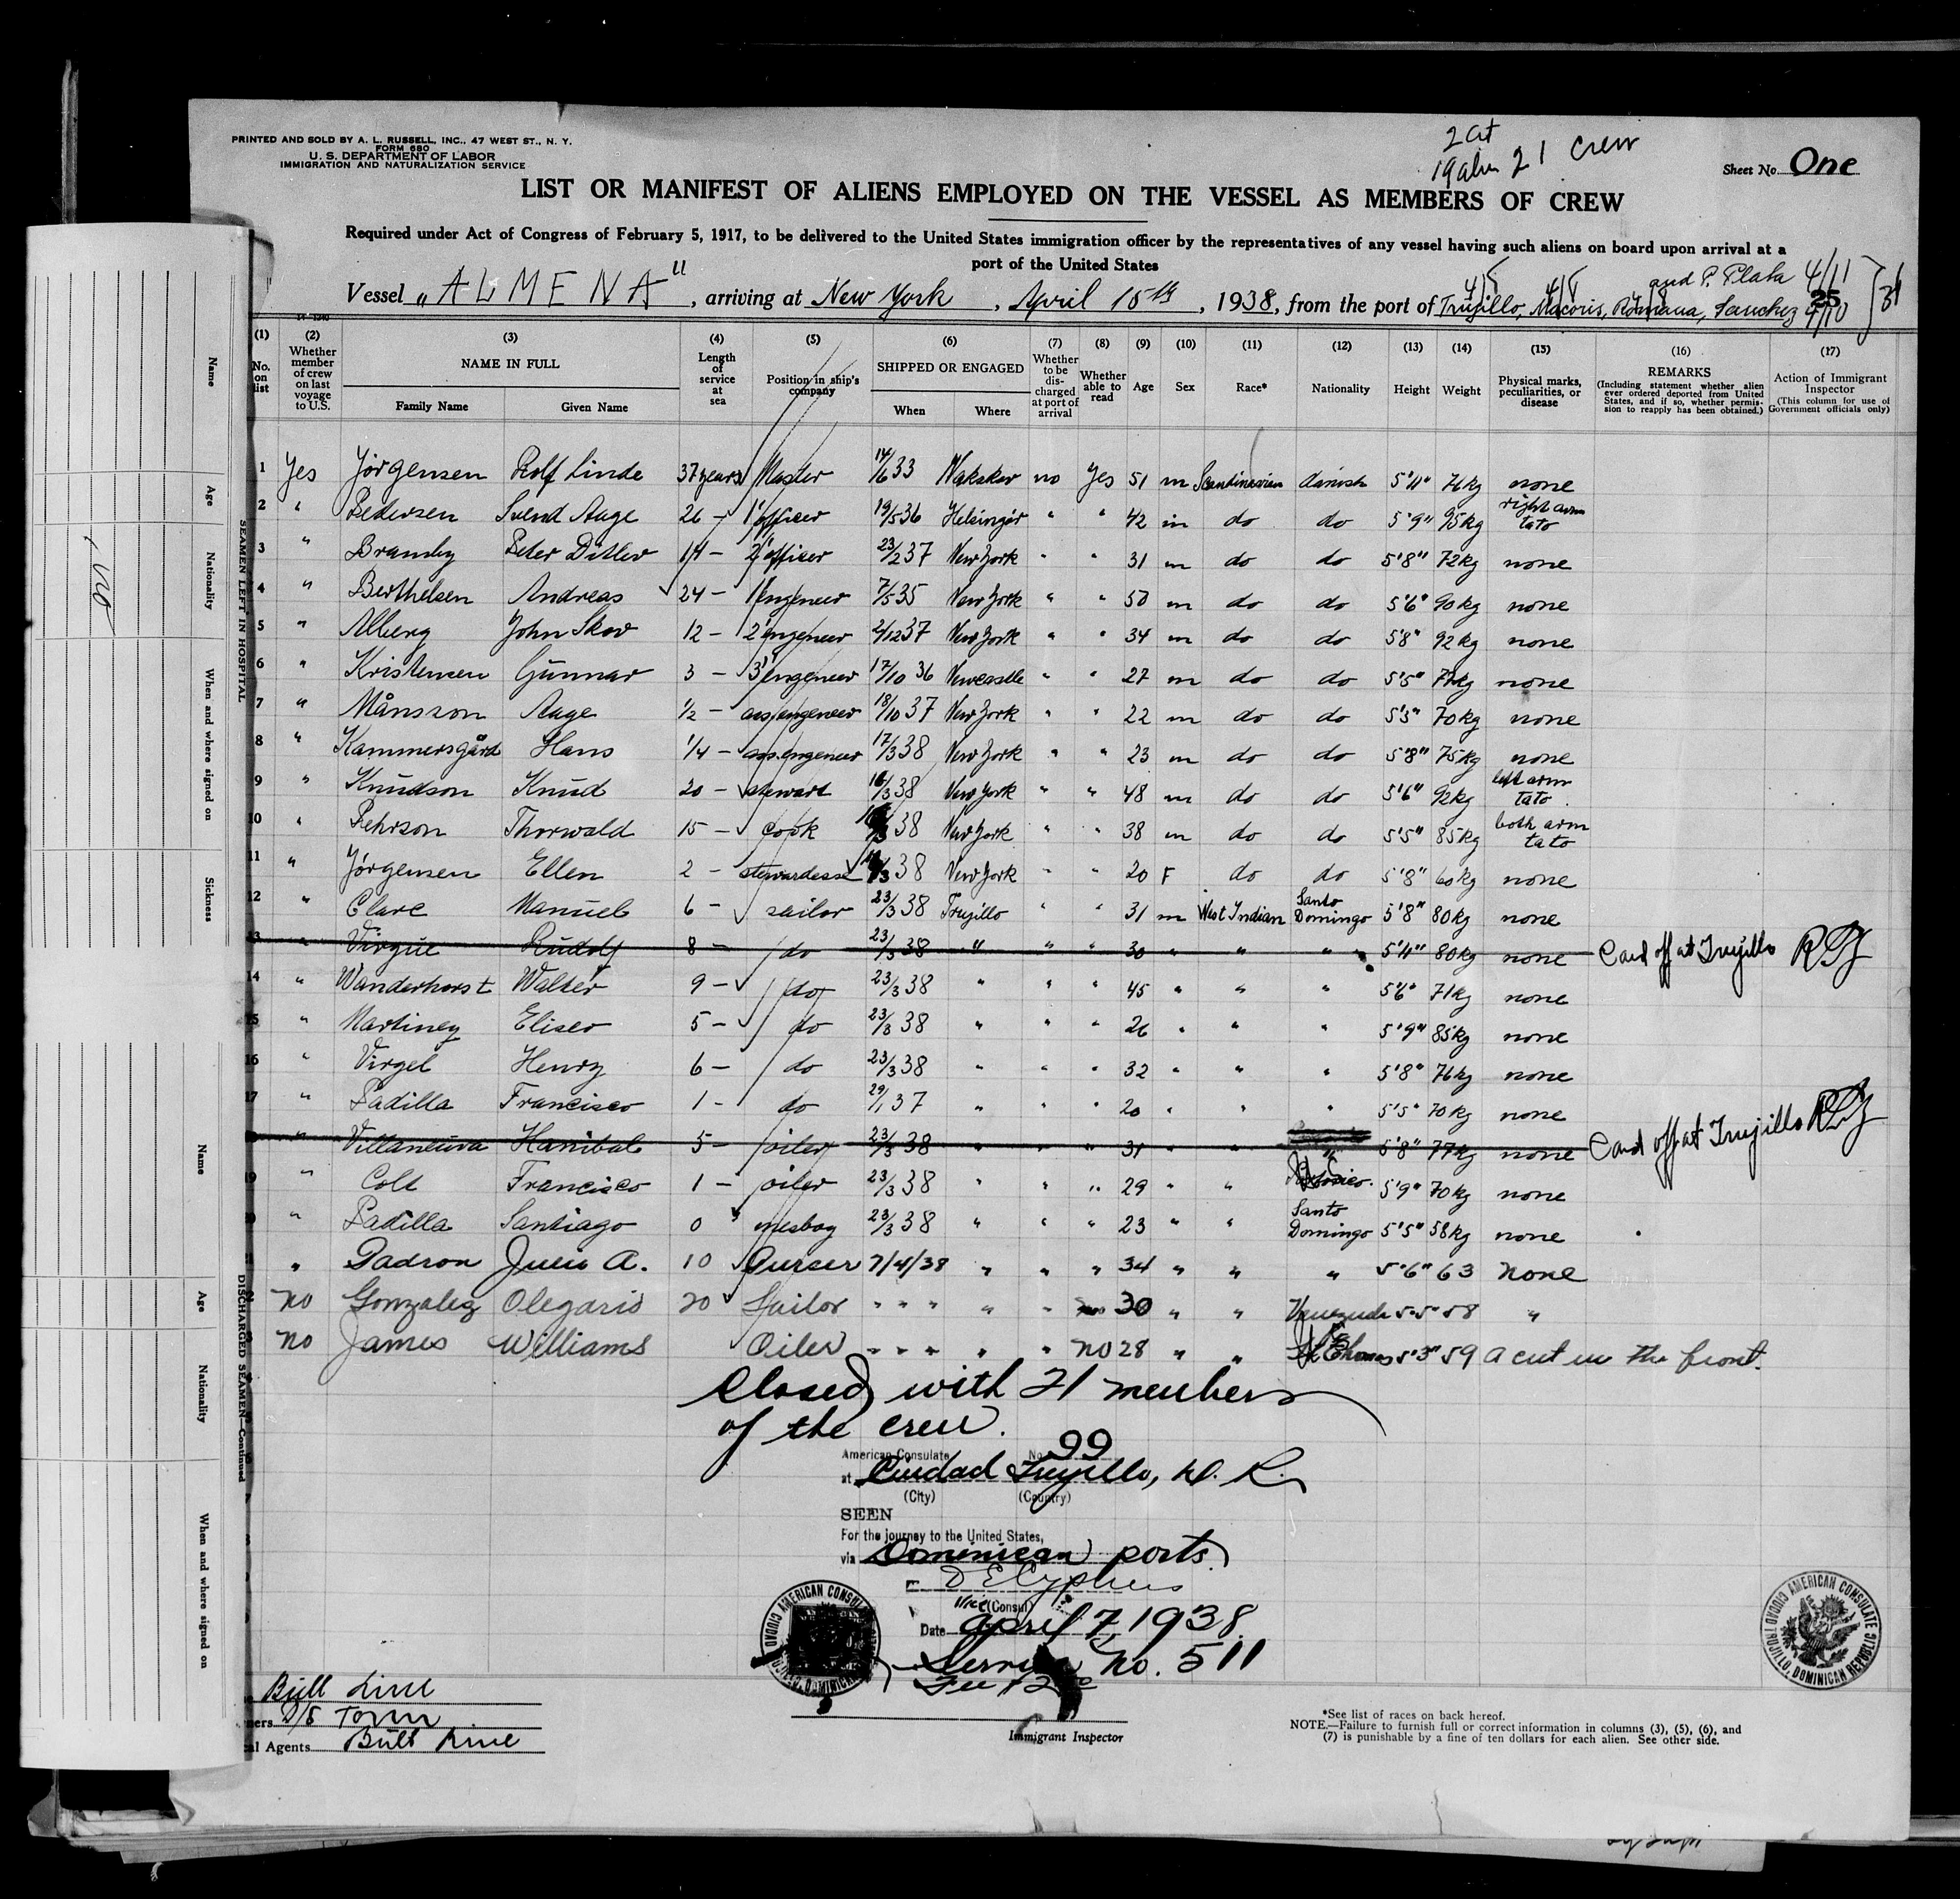 PRINTED AND SOLD BY A. L. RUSSELL, INC., 47 WEST ST., N. Y.
FORM 680
U. S. DEPARTMENT OF LABOR
IMMIGRATION AND NATURALIZATION SERVICE
2 Cit
19 alien 21 Crew
Sheet No. One
LIST OR MANIFEST OF ALIENS EMPLOYED ON THE VESSEL AS MEMBERS OF CREW
Required under Act of Congress of February 5, 1917, to be delivered to the United States immigration officer by the representatives of any vessel having such aliens on board upon arrival at a
port of the United States
and P. Plata 4/11
Vessel "ALMENA", arriving at New York, April 15th, 1938, from the port of Trujillo, Macoris, Romana, Sanchez 4/10
(1) (2) (3) (4) (5) (6) (7) (8) (9) (10) (11) (12) (13) (14) (15) (16) (17)
No. on list
Whether member of crew on last voyage to U.S.
NAME IN FULL
Family Name
Given Name
Length of service at sea
Position in ship's company
SHIPPED OR ENGAGED
When
Where
Whether to be discharged at port of arrival
Whether able to read
Age
Sex
Race*
Nationality
Height
Weight
Physical marks, peculiarities, or disease
REMARKS
(Including statement whether alien ever ordered deported from United States, and if so, whether permission to reapply has been obtained.)
Action of Immigrant Inspector
(This column for use of Government officials only)
1 Yes Jörgensen Rolf Linde 37 years Master 14/6 33 Nakskov no Yes 51 m Scandinavian danish 5'11" 76kg none
2 " Pedersen Svend Aage 26 - 1'officer 19/5 36 Helsingör " " 42 m do do 5'9" 95kg right arm tato
3 " Bramby Peter Ditlev 14 - 2'officer 23/2 37 New York " " 31 m do do 5'8" 72kg none
4 " Berthelsen Andreas 24 - 1'engeneer 7/5 35 New York " " 50 m do do 5'6" 90kg none
5 " Alberg John Skov 12 - 2'engeneer 2/12 37 New York " " 34 m do do 5'8" 92kg none
6 " Kristensen Gunnar 3 - 3'engeneer 17/10 36 Newcastle " " 27 m do do 5'5" 77kg none
7 " Månsson Aage 1/2 - ass.engeneer 18/10 37 New York " " 22 m do do 5'5" 70kg none
8 " Kammersgård Hans 1/4 - ass.engeneer 17/3 38 New York " " 23 m do do 5'8" 75kg none
9 " Knudson Knud 20 - stewart 16/3 38 New York " " 48 m do do 5'6" 92kg left arm tato
10 " Pehrson Thorwald 15 - cook 38 New York " " 38 m do do 5'5" 85kg both arm tato
11 " Jörgensen Ellen 2 - stewardesse 38 New York " " 20 F do do 5'8" 60kg none
12 " Clare Manuel 6 - sailor 23/3 38 Trujillo " " 31 m West Indian Santo Domingo 5'8" 80kg none
13 " Virgue Rudolf 8 - do 23/3 38 " " " 30 " " " 5'11" 80kg none Card off at Trujillo
14 " Wanderhorst Walter 9 - do 23/3 38 " " " 45 " " " 5'6" 71kg none
15 " Martiney Eliseo 5 - do 23/3 38 " " " 26 " " " 5'9" 85kg none
16 " Virgel Henry 6 - do 23/3 38 " " " 32 " " " 5'8" 76kg none
17 " Padilla Francisco 1 - do 29/1 37 " " " 20 " " " 5'5" 70kg none
" Villaneuva Hanibal 5 - oiler 23/3 38 " " " 31 " " " 5'8" 77kg none Card off at Trujillo
19 " Colt Francisco 1 - oiler 23/3 38 " " " 29 " " 5'9" 70kg none
" Padilla Santiago 0 mesboy 23/3 38 " " " 23 " " Santo Domingo 5'5" 58kg none
" Padron Julio A. 10 Purser 7/4/38 " " " 34 " " " 5'6" 63 none
no Gonzalez Olegario 20 Sailor " " " " " no 30 " " Venezuela 5'5" 58 "
no James Williams Oiler " " " " " no 28 " " St Thomas 5'3" 59 A cut in the front.
Closed with 21 members
of the crew.
American Consulate No. 99
at Ciudad Trujillo, D. R.
(City) (Country)
SEEN
For the journey to the United States,
via Dominican ports
Vice (Consul)
Date April 7, 1938
Service No. 511
AMERICAN CONSULATE
CIUDAD TRUJILLO, DOMINICAN REPUBLIC
Immigrant Inspector
Bull Line
Torm
al Agents Bull Line
*See list of races on back hereof.
NOTE.—Failure to furnish full or correct information in columns (3), (5), (6), and
(7) is punishable by a fine of ten dollars for each alien. See other side.
SEAMEN LEFT IN HOSPITAL
Name
Age
Nationality
When and where signed on
Sickness
DISCHARGED SEAMEN—Continued
Name
Age
Nationality
When and where signed on